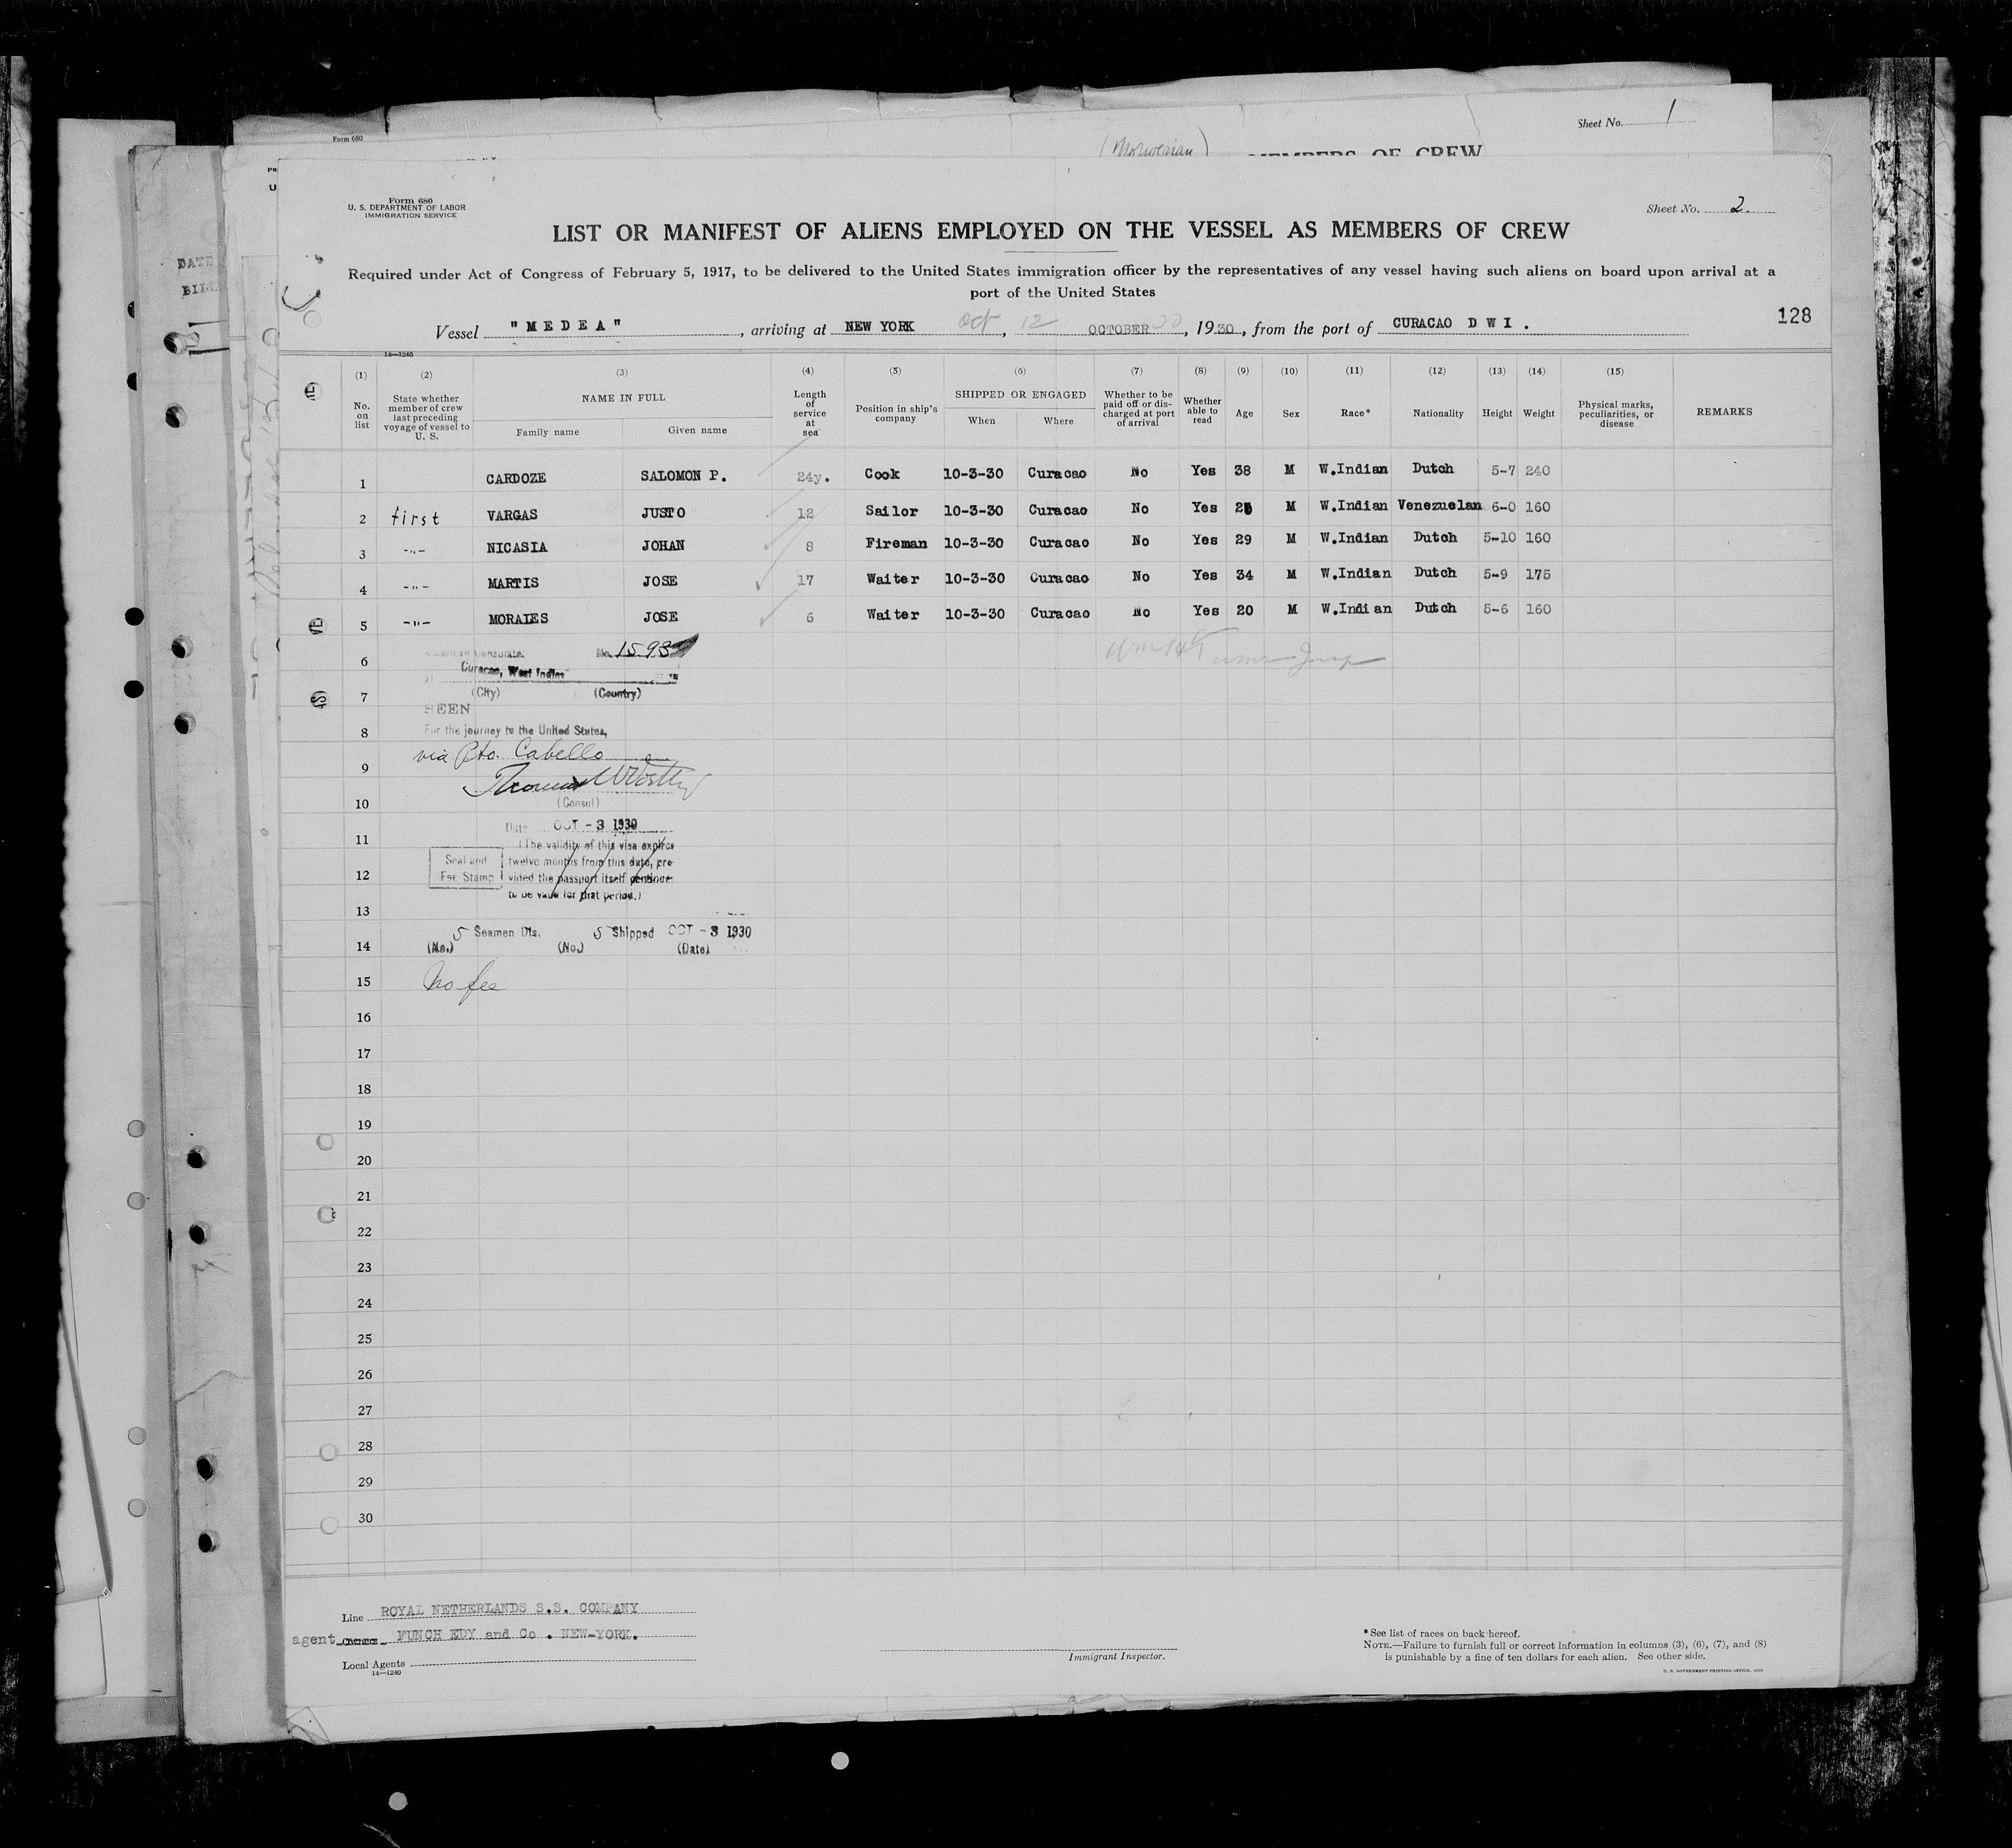 Form 680
Sheet No. 1
(Norwegian)
MEMBERS OF CREW
Form 680
U. S. DEPARTMENT OF LABOR
IMMIGRATION SERVICE
Sheet No. 2.
LIST OR MANIFEST OF ALIENS EMPLOYED ON THE VESSEL AS MEMBERS OF CREW
Required under Act of Congress of February 5, 1917, to be delivered to the United States immigration officer by the representatives of any vessel having such aliens on board upon arrival at a
port of the United States
128
Vessel "MEDEA", arriving at NEW YORK Oct 12, OCTOBER, 1930, from the port of CURACAO D W I .
14—1240
(1) (2) (3) (4) (5) (6) (7) (8) (9) (10) (11) (12) (13) (14) (15)
No. on list
State whether member of crew last preceding voyage of vessel to U. S.
NAME IN FULL
Family name Given name
Length of service at sea
Position in ship's company
SHIPPED OR ENGAGED
When Where
Whether to be paid off or discharged at port of arrival
Whether able to read
Age
Sex
Race*
Nationality
Height
Weight
Physical marks, peculiarities, or disease
REMARKS
1 CARDOZE SALOMON P. 24y. Cook 10-3-30 Curacao No Yes 38 M W.Indian Dutch 5-7 240
2 first VARGAS JUSTO 12 Sailor 10-3-30 Curacao No Yes M W.Indian Venezuelan 6-0 160
3 -"- NICASIA JOHAN 8 Fireman 10-3-30 Curacao No Yes 29 M W.Indian Dutch 5-10 160
4 -"- MARTIS JOSE 17 Waiter 10-3-30 Curacao No Yes 34 M W.Indian Dutch 5-9 175
5 -"- MORALES JOSE 6 Waiter 10-3-30 Curacao No Yes 20 M W.Indian Dutch 5-6 160
6
American Consulate. No. 1593
Curacao, West Indies
7
(City) (Country)
SEEN
8
For the journey to the United States,
via Pto. Cabello
9
10
(Consul)
Date OCT - 3 1930
11
(The validity of this visa expires
12
Seal and
Fee Stamp
twelve months from this date, pro-
vided the passport itself continue
to be valid for that period.)
13
5 Seamen Dis. 5 Shipped OCT - 3 1930
14
(No.) (No.) (Date)
15
No fee
16
17
18
19
20
21
22
23
24
25
26
27
28
29
30
Line ROYAL NETHERLANDS S.S. COMPANY
agent Owners FUNCH EDY and Co . NEW-YORK.
Local Agents
14—1240
Immigrant Inspector.
* See list of races on back hereof.
NOTE.—Failure to furnish full or correct information in columns (3), (6), (7), and (8)
is punishable by a fine of ten dollars for each alien. See other side.